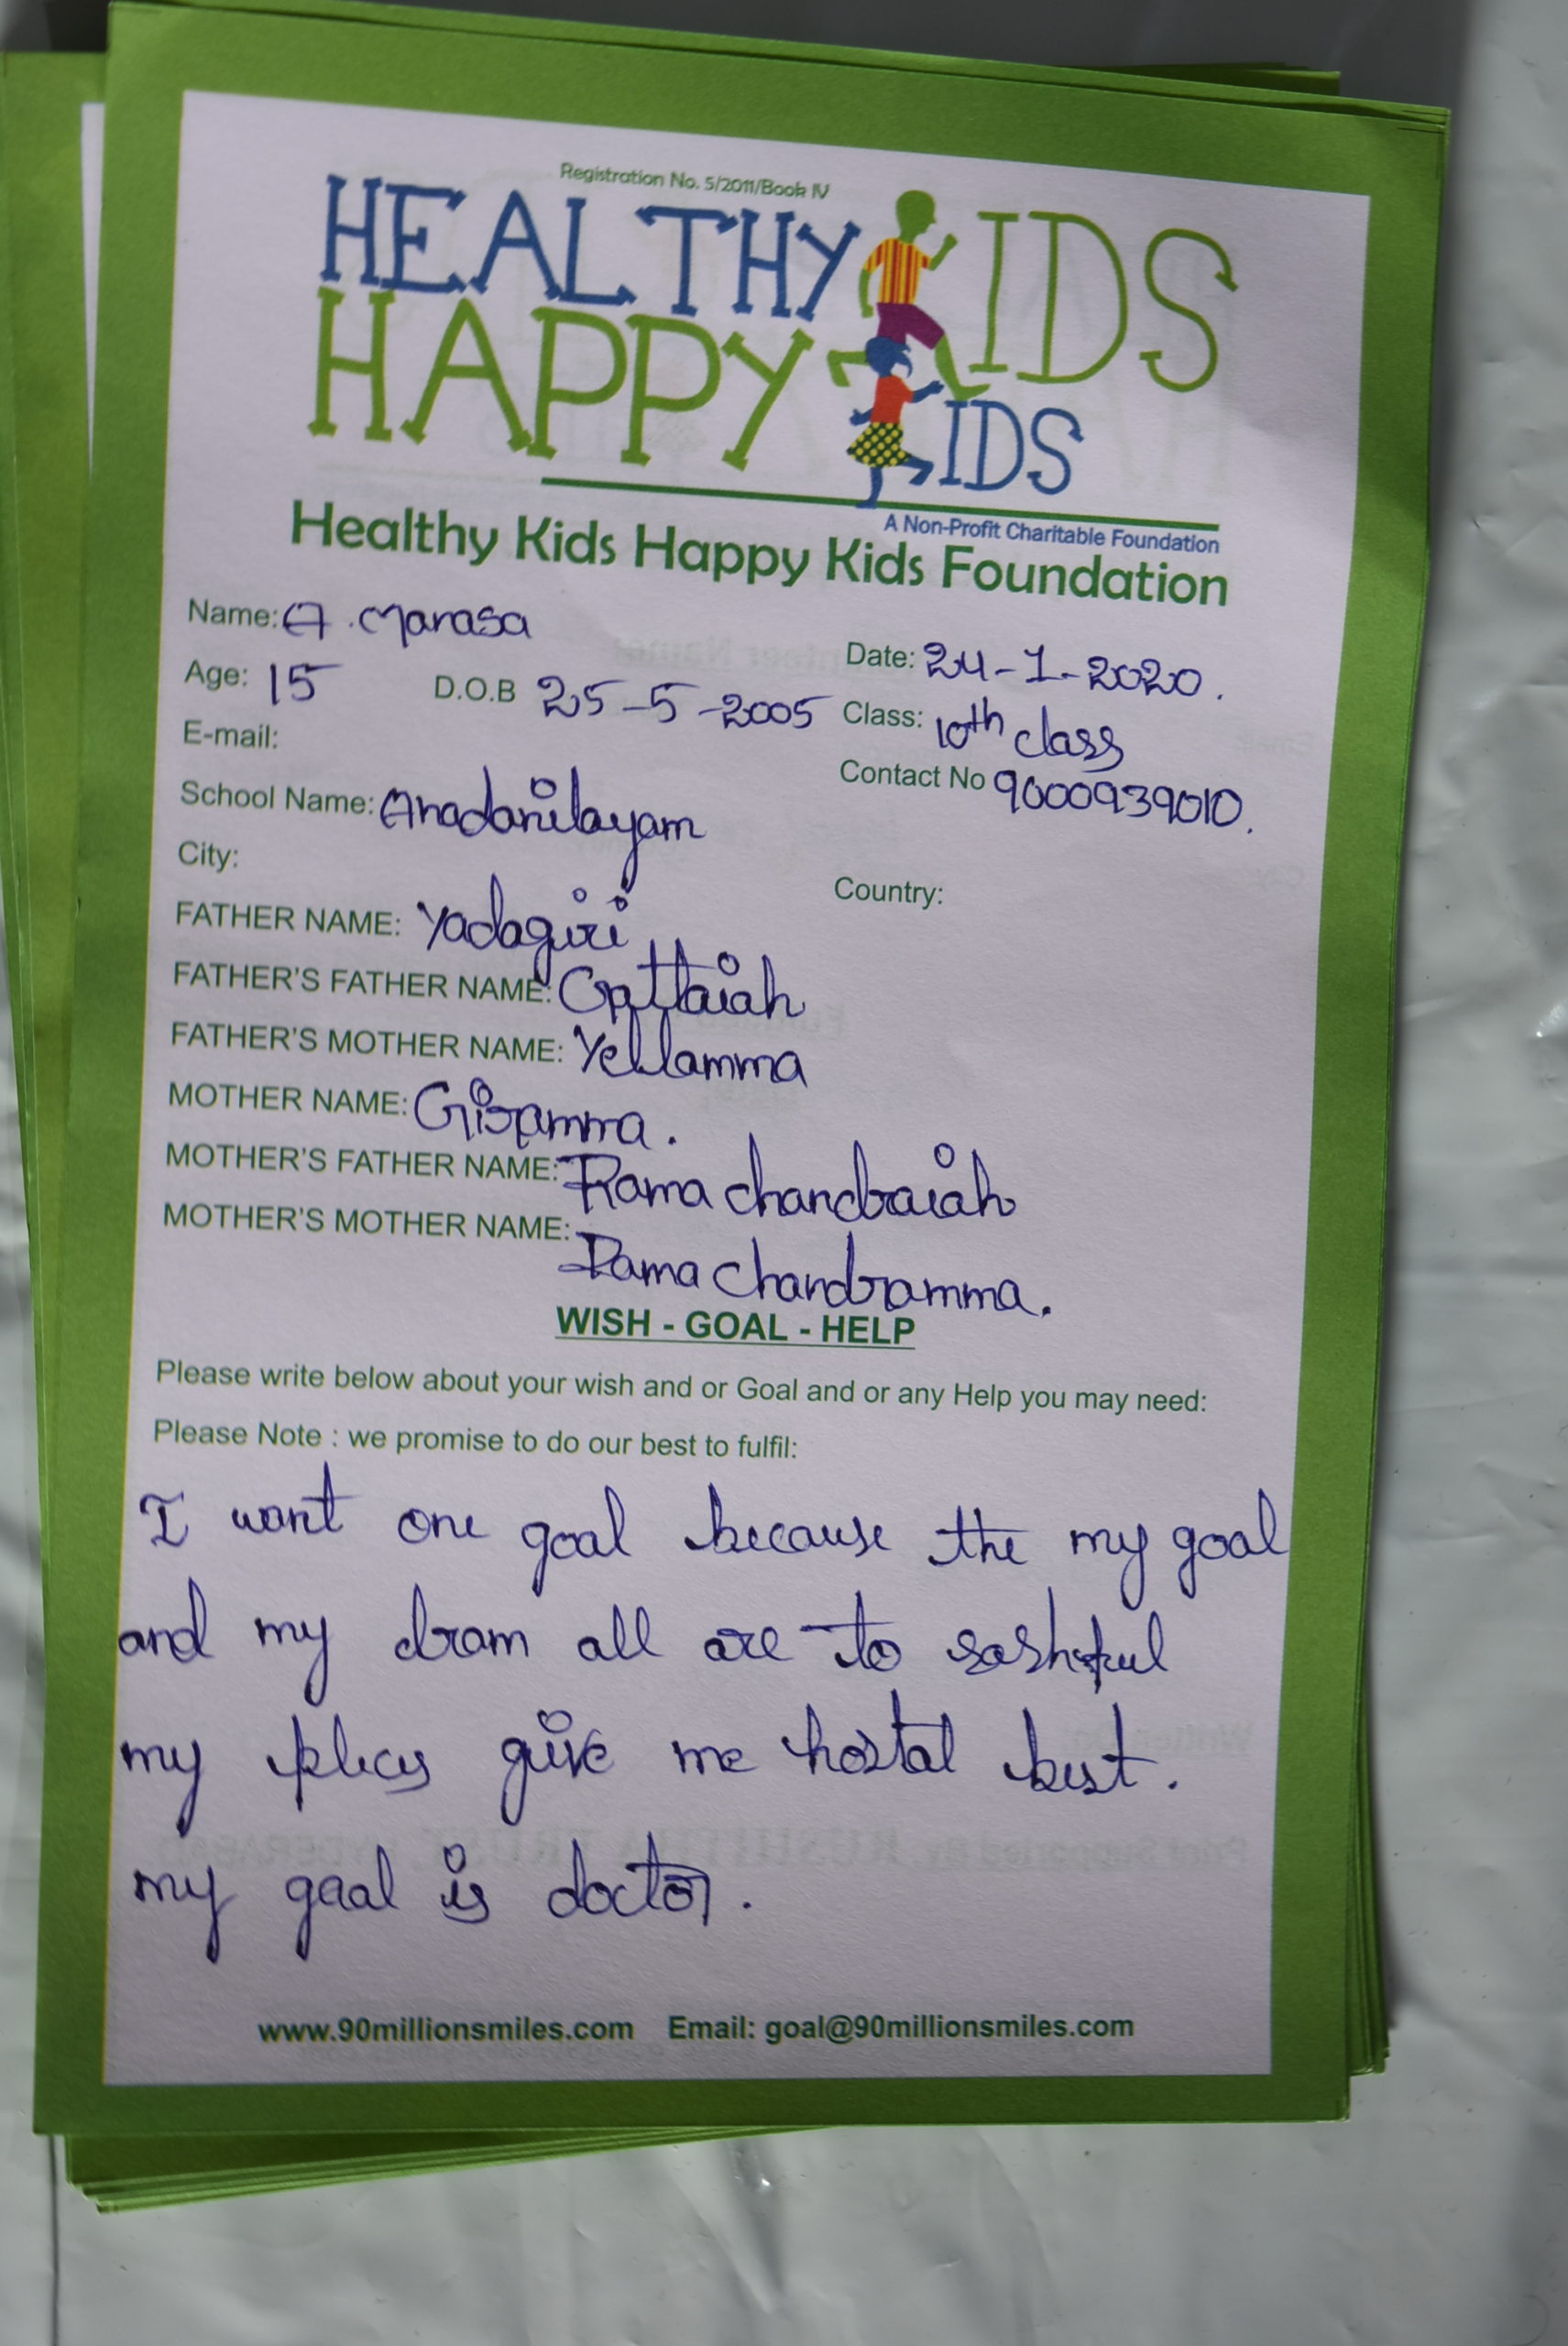 Registration No. 5/2011/Book IV
HEALTHY KIDS
HAPPY KIDS
A Non-Profit Charitable Foundation
Healthy Kids Happy Kids Foundation
Name: A. Manasa
Date: 24-1-2020.
Age: 15 D.O.B 25-5-2005 Class: 10th class
E-mail:
Contact No 9000939010.
School Name: Anadanilayam
City:
Country:
FATHER NAME: Yadagiri
FATHER'S FATHER NAME: Gattaiah
FATHER'S MOTHER NAME: Yellamma
MOTHER NAME: Giramma.
MOTHER'S FATHER NAME: Rama chandraiah
MOTHER'S MOTHER NAME: Rama chandramma.
WISH - GOAL - HELP
Please write below about your wish and or Goal and or any Help you may need:
Please Note : we promise to do our best to fulfil:
I want one goal because the my goal
and my dram all are to
my plices give me hostal best.
my goal is doctor.
www.90millionsmiles.com Email: goal@90millionsmiles.com